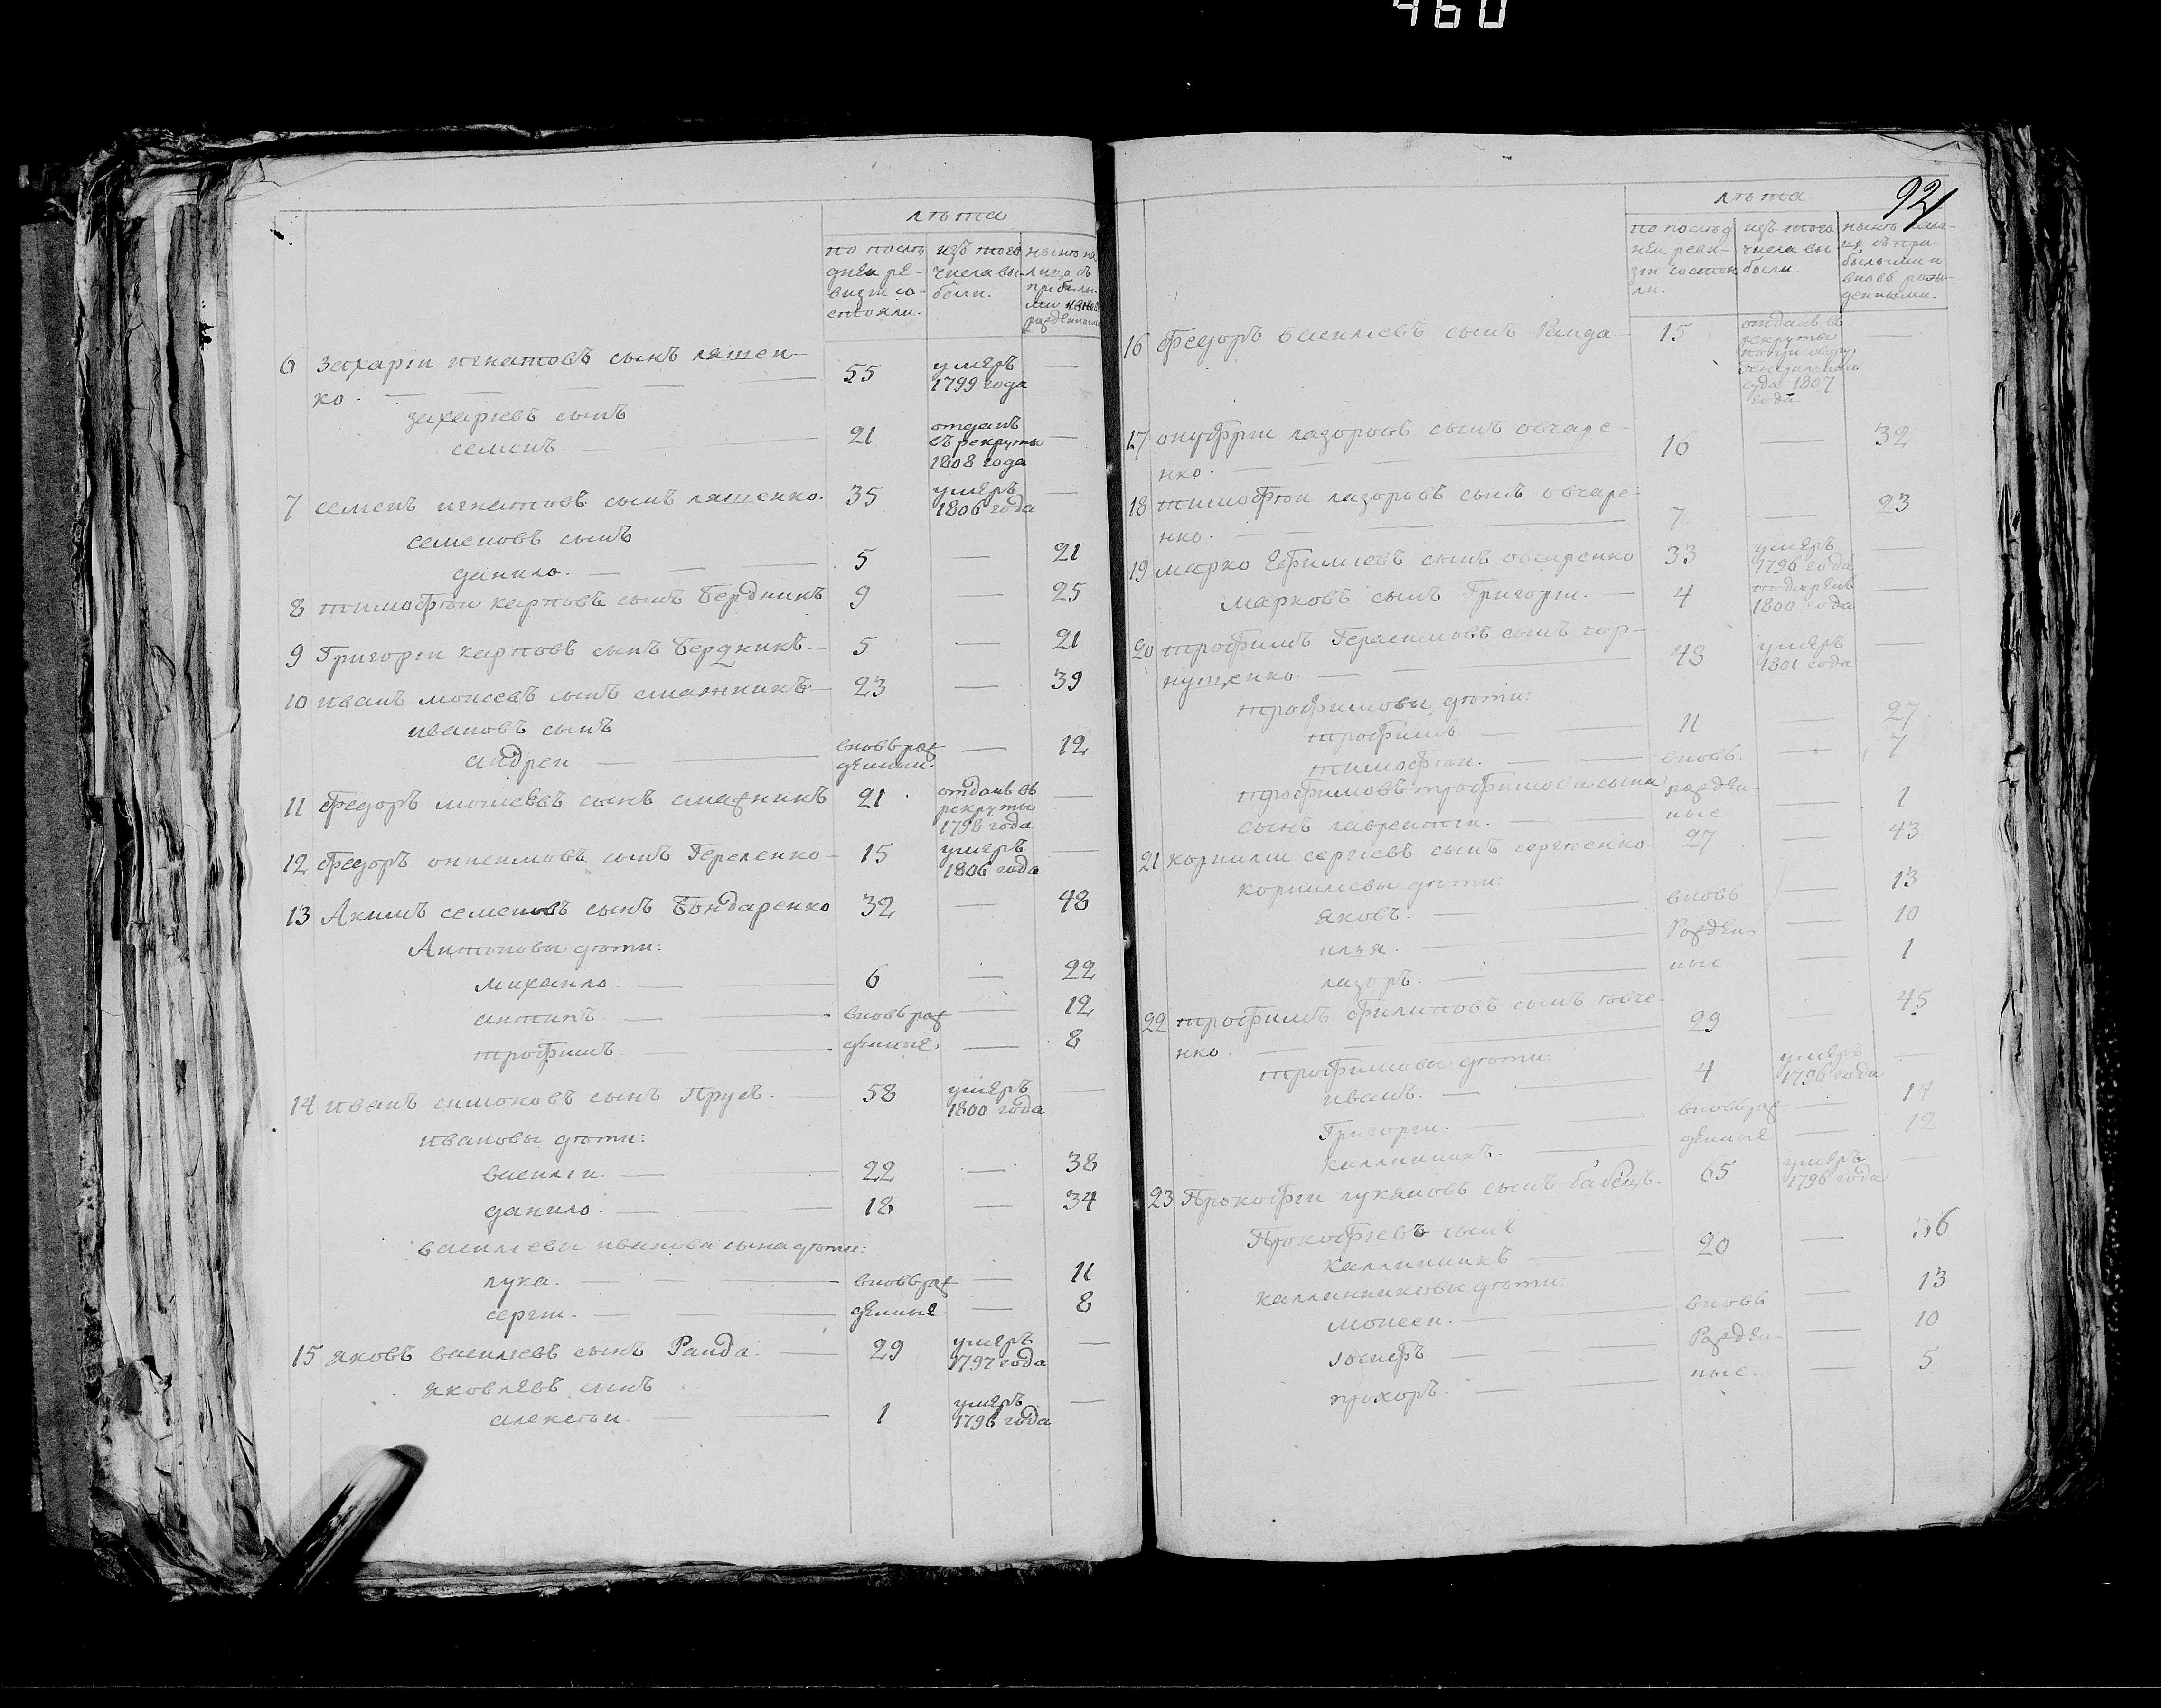 460
лѣта
по послѣ
дней ре-
визіи со-
стояли.
изъ того
числа вы-
были.
нынѣ на
лицо съ
прибылы-
ми
рожденными
6 Захаріи игнатовъ сынъ ляшен-
ко. 55 умеръ 1799 года —
захаріевъ сынъ
семенъ. 21 отданъ въ рекруты 1808 года —
7 семенъ игнатовъ сынъ ляшенко. 35 умеръ 1806 года —
семеновъ сынъ
данило. 5 — 21
8 тимофѣи карповъ сынъ бердникъ 9 — 25
9 Григоріи карповъ сынъ бердникъ. 5 — 21
10 иванъ моисеевъ сынъ смажникъ 23 — 39
ивановъ сынъ
андреи вновь рож — 12
денни.
11 федоръ моисеевъ сынъ смажникъ 21 отданъ въ рекруты 1798 года —
12 федоръ онисимовъ сынъ Гереленко 15 умеръ 1806 года —
13 Акимъ семеновъ сынъ бондаренко 32 — 48
Антоновы дѣти:
михаило. 6 — 22
антипъ вновь рож — 12
трофимъ денные. — 8
14 иванъ симоновъ сынъ Прусъ. 58 умеръ 1800 года —
ивановы дѣти:
василіи. 22 — 38
данило. 18 — 34
василіевы иванова сына дѣти:
лука. вновь рож — 11
сергіи. денные — 8
15 яковъ василіевъ сынъ Раида. 29 умеръ 1797 года —
яковлевъ сынъ
алексѣи. 1 умеръ 1796 года —
92
лѣта
по послѣд
ней реви-
зіи состоя
ли.
изъ того
числа вы
были.
нынѣ
цо съ при-
былыми и
вновь рож-
денными.
16 федоръ василіевъ сынъ Раида 15 отданъ въ рекруты по приговору суда 1807 года —
17 онуфріи лазоровъ сынъ овчаре-
нко. 16 — 32
18 тимофѣи лазоровъ сынъ овчаре-
нко. 7 — 23
19 марко ефиміевъ сынъ овчаренко 33 умеръ 1796 года —
марковъ сынъ Григоріи. 4 1800 года —
20 трофимъ Герасимовъ сынъ чор-
нущенко. 48 умеръ 1801 года —
трофимовы дѣти:
трофимъ 11 — 27
тимофѣи. вновь. — 7
трофимовъ трофимова сына рожден-
сынъ лаврентіи. ные — 1
21 корнилій сергіевъ сынъ сергѣенко 27 — 43
корниліевы дѣти:
яковъ. вновь — 13
илья. Рожден- — 10
лазоръ. ные — 1
22 трофимъ филиповъ сынъ говче-
нко. 29 — 45
трофимовы дѣти:
иванъ. 4 умеръ 1796 года —
Григоріи. вновь рож — 14
каллиникъ. денные — 12
23 Прокофіи лукяновъ сынъ бабецъ. 65 умеръ 1796 года —
Прокофіевъ сынъ
каллиникъ 20 — 36
каллиниковы дѣти:
моисеи. вновь — 13
іосифъ Рожден- — 10
прохоръ. ные. — 5